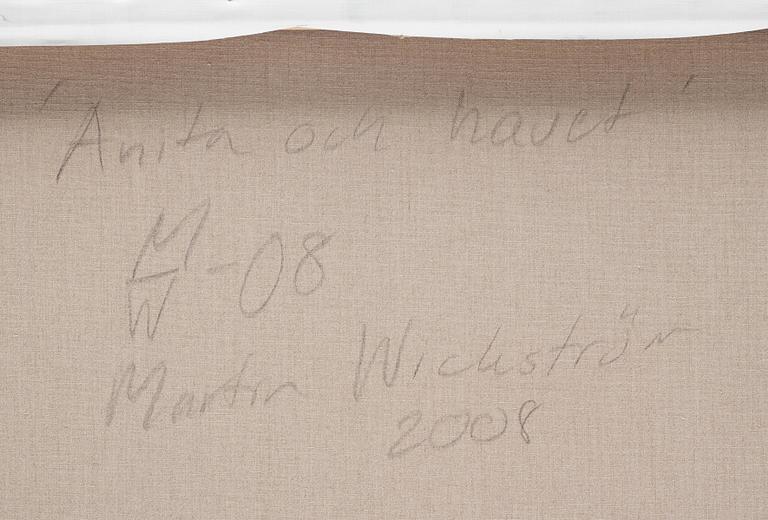 'Anita och havet'
M
W -08
Martin Wickström
2008